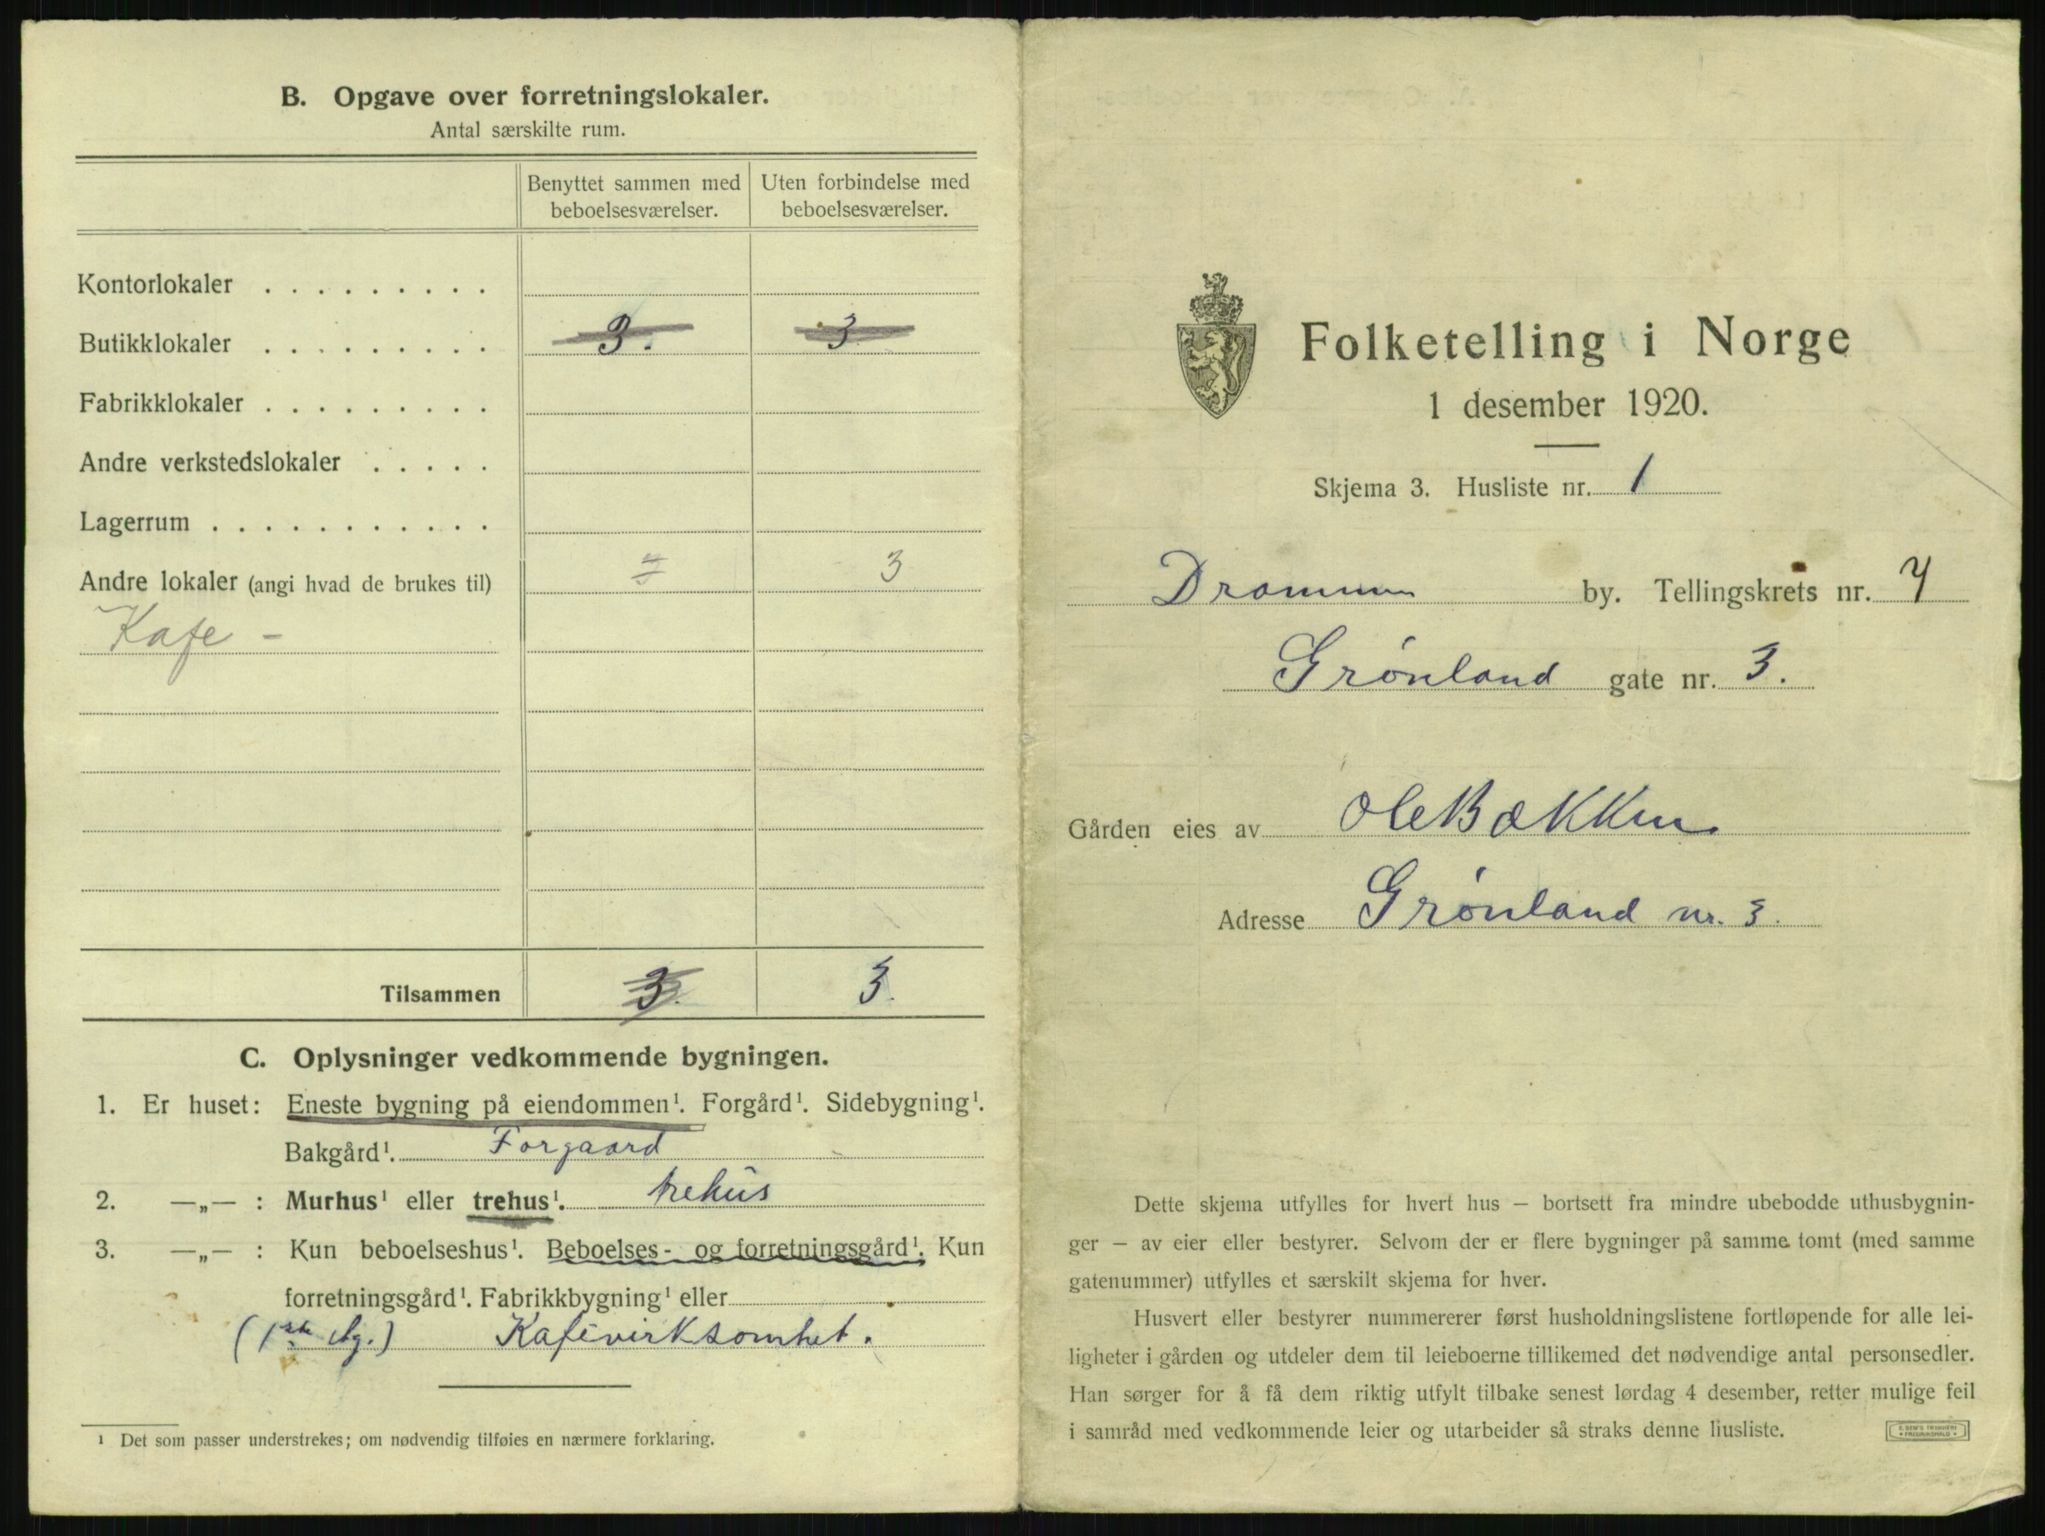 B. Opgave over forretningslokaler.
Antal særskilte rum.
Benyttet sammen med beboelsesværelser.
Uten forbindelse med beboelsesværelser.
Kontorlokaler . . . . . . . . .
Butikklokaler . . . . . . . . . 3. 3
Fabrikklokaler . . . . . . . . .
Andre verkstedslokaler . . . . .
Lagerrum . . . . . . . . . . .
Andre lokaler (angi hvad de brukes til) 3
Kafe –
Tilsammen 3. 3.
C. Oplysninger vedkommende bygningen.
1. Er huset: Eneste bygning på eiendommen¹. Forgård¹. Sidebygning¹.
Bakgård¹. Forgaard
2. —„— : Murhus¹ eller trehus¹. trehus
3. —„— : Kun beboelseshus¹. Beboelses- og forretningsgård¹. Kun
forretningsgård¹. Fabrikkbygning¹ eller
Kafévirksomhet.
¹ Det som passer understrekes; om nødvendig tilføies en nærmere forklaring.
Folketelling i Norge
1 desember 1920.
Skjema 3. Husliste nr. 1
Drammen by. Tellingskrets nr. 4
Grønland gate nr. 3.
Gården eies av Ole Bækken
Adresse Grønland nr. 3.
Dette skjema utfylles for hvert hus – bortsett fra mindre ubebodde uthusbygnin-
ger – av eier eller bestyrer. Selvom der er flere bygninger på samme tomt (med samme
gatenummer) utfylles et særskilt skjema for hver.
Husvert eller bestyrer nummererer først husholdningslistene fortløpende for alle lei-
ligheter i gården og utdeler dem til leieboerne tillikemed det nødvendige antal personsedler.
Han sørger for å få dem riktig utfylt tilbake senest lørdag 4 desember, retter mulige feil
i samråd med vedkommende leier og utarbeider så straks denne husliste.